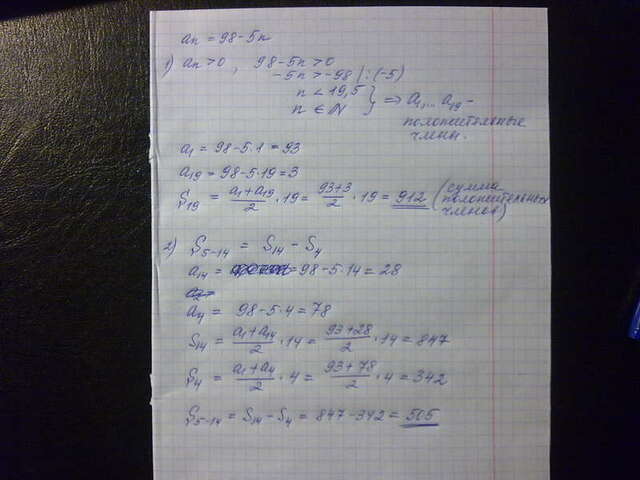 an = 98 - 5n
1) an > 0, 98 - 5n > 0
-5n > -98 | : (-5)
n < 19,5 } => a1, ... a19 -
n ∈ N положительные
члены.
a1 = 98 - 5·1 = 93
a19 = 98 - 5·19 = 3
S19 = (a1 + a19)/2 · 19 = (93+3)/2 · 19 = 912 (сумма
положительных
членов)
2) S5-14 = S14 - S4
a14 = = 98 - 5·14 = 28
a4 = 98 - 5·4 = 78
S14 = (a1 + a14)/2 · 14 = (93+28)/2 · 14 = 847
S4 = (a1 + a4)/2 · 4 = (93 + 78)/2 · 4 = 342
S5-14 = S14 - S4 = 847 - 342 = 505